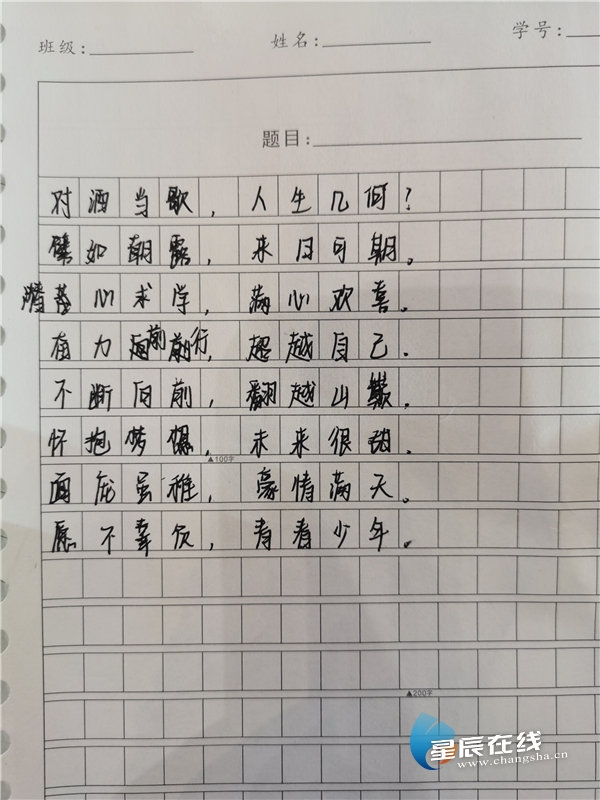 班级: 姓名: 学号:
题目:
对酒当歌，人生几何?
譬如朝露，来日可朝。
心求学，满心欢喜。
奋力前行，超越自己.
不断向前，翻越山。
怀抱梦想，未来很甜.
▲100字
面庞虽稚，豪情满天。
愿不辜负，青春少年。
▲200字
星辰在线
www.changsha.cn